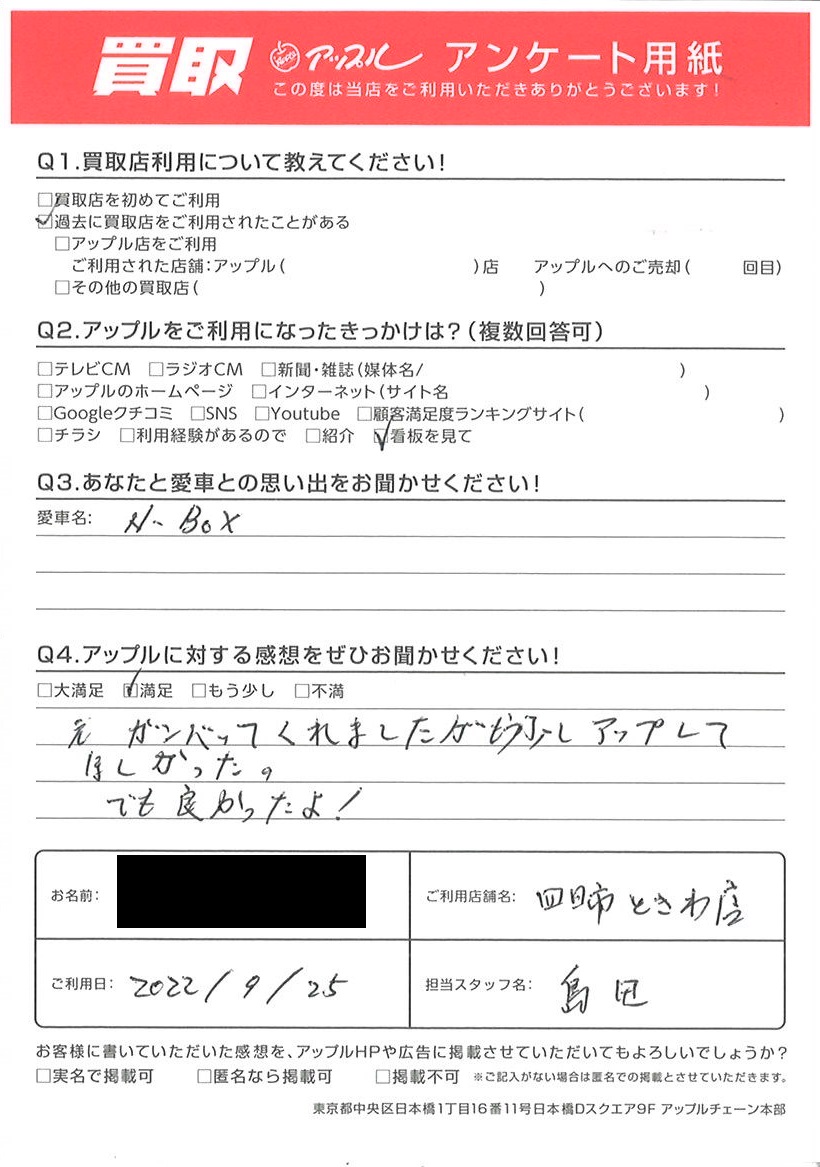 買取 アップル アンケート用紙
この度は当店をご利用いただきありがとうございます!
Q1.買取店利用について教えてください!
□買取店を初めてご利用
☑過去に買取店をご利用されたことがある
□アップル店をご利用
ご利用された店舗:アップル( )店 アップルへのご売却( 回目)
□その他の買取店( )
Q2.アップルをご利用になったきっかけは?(複数回答可)
□テレビCM □ラジオCM □新聞・雑誌(媒体名/ )
□アップルのホームページ □インターネット(サイト名 )
□Googleクチコミ □SNS □Youtube □顧客満足度ランキングサイト( )
□チラシ □利用経験があるので □紹介 ☑看板を見て
Q3.あなたと愛車との思い出をお聞かせください!
愛車名: N-BOX
Q4.アップルに対する感想をぜひお聞かせください!
□大満足 ☑満足 □もう少し □不満
ガンバってくれましたがもう少しアップして
ほしかった。
でも良かったよ!
お名前: ご利用店舗名: 四日市ときわ店
ご利用日: 2022/9/25 担当スタッフ名: 島田
お客様に書いていただいた感想を、アップルHPや広告に掲載させていただいてもよろしいでしょうか?
□実名で掲載可 □匿名なら掲載可 □掲載不可 ※ご記入がない場合は匿名での掲載とさせていただきます。
東京都中央区日本橋1丁目16番11号日本橋Dスクエア9F アップルチェーン本部